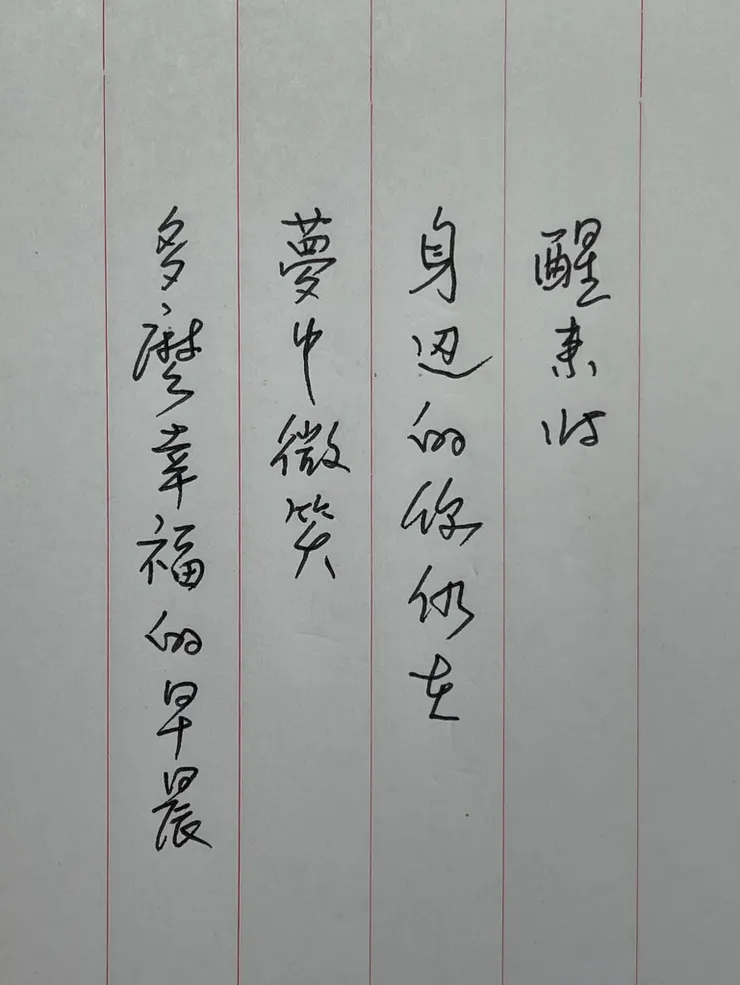 醒来时
身边的你仍在
夢中微笑
多麼幸福的早晨